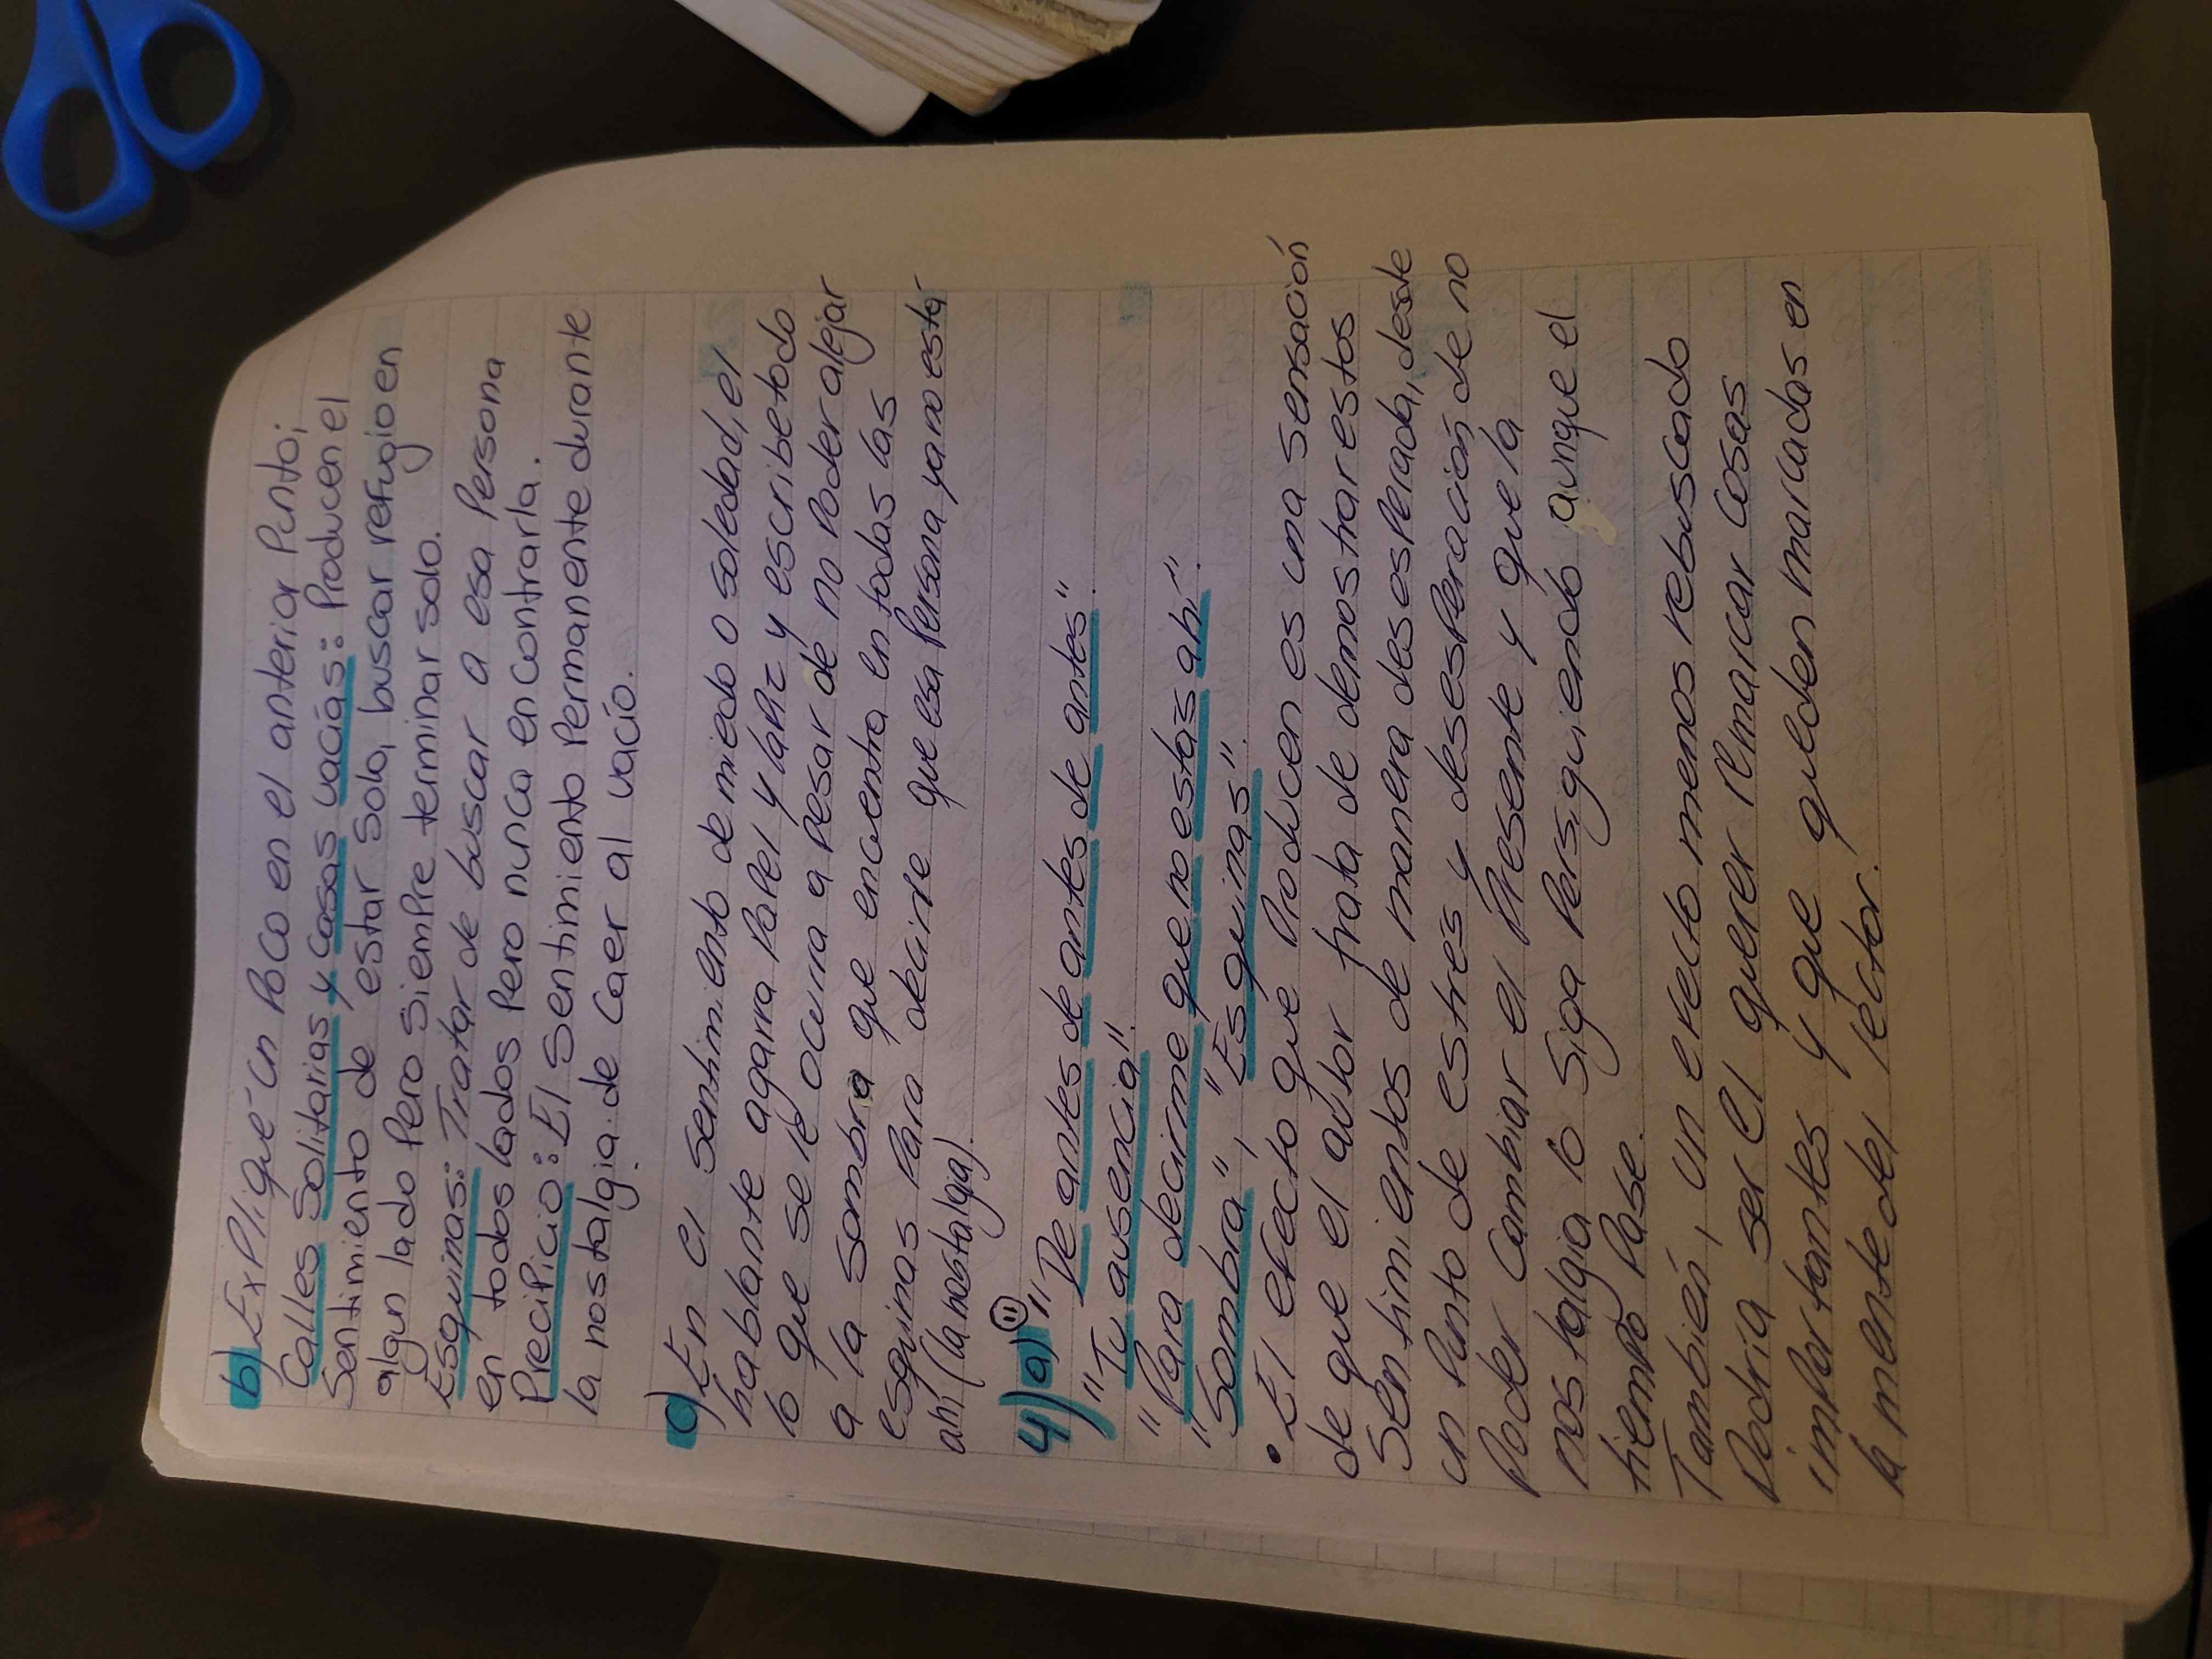 b) Expliqué un poco en el anterior punto;
Calles solitarias y casas vacías: Producen el
sentimiento de estar solo, buscar refugio en
algun lado pero siempre terminar solo.
Esquinas: Tratar de buscar a esa persona
en todos lados pero nunca encontrarla.
Precipicio: El sentimiento permanente durante
la nostalgia de caer al vacío.
c) En el sentimiento de miedo o soledad, el
hablante agarra papel y lápiz y escribe todo
lo que se le ocurra a pesar de no poder alejar
a la sombra que encuentra en todas las
esquinas para decirle que esa persona ya no está
ahí (la nostalgia).
4) a) "De antes de antes de antes de antes".
"Tu ausencia".
"Para decirme que no estás ahí".
"Sombra", "Esquinas".
• El efecto que producen es una sensación
de que el autor trata de demostrar estos
sentimientos de manera desesperada, desde
un punto de estrés y desesperación de no
poder cambiar el presente y que la
nostalgia lo siga persiguiendo aunque el
tiempo pase.
También, un efecto menos rebuscado
podría ser el querer remarcar cosas
importantes y que queden marcadas en
la mente del lector.